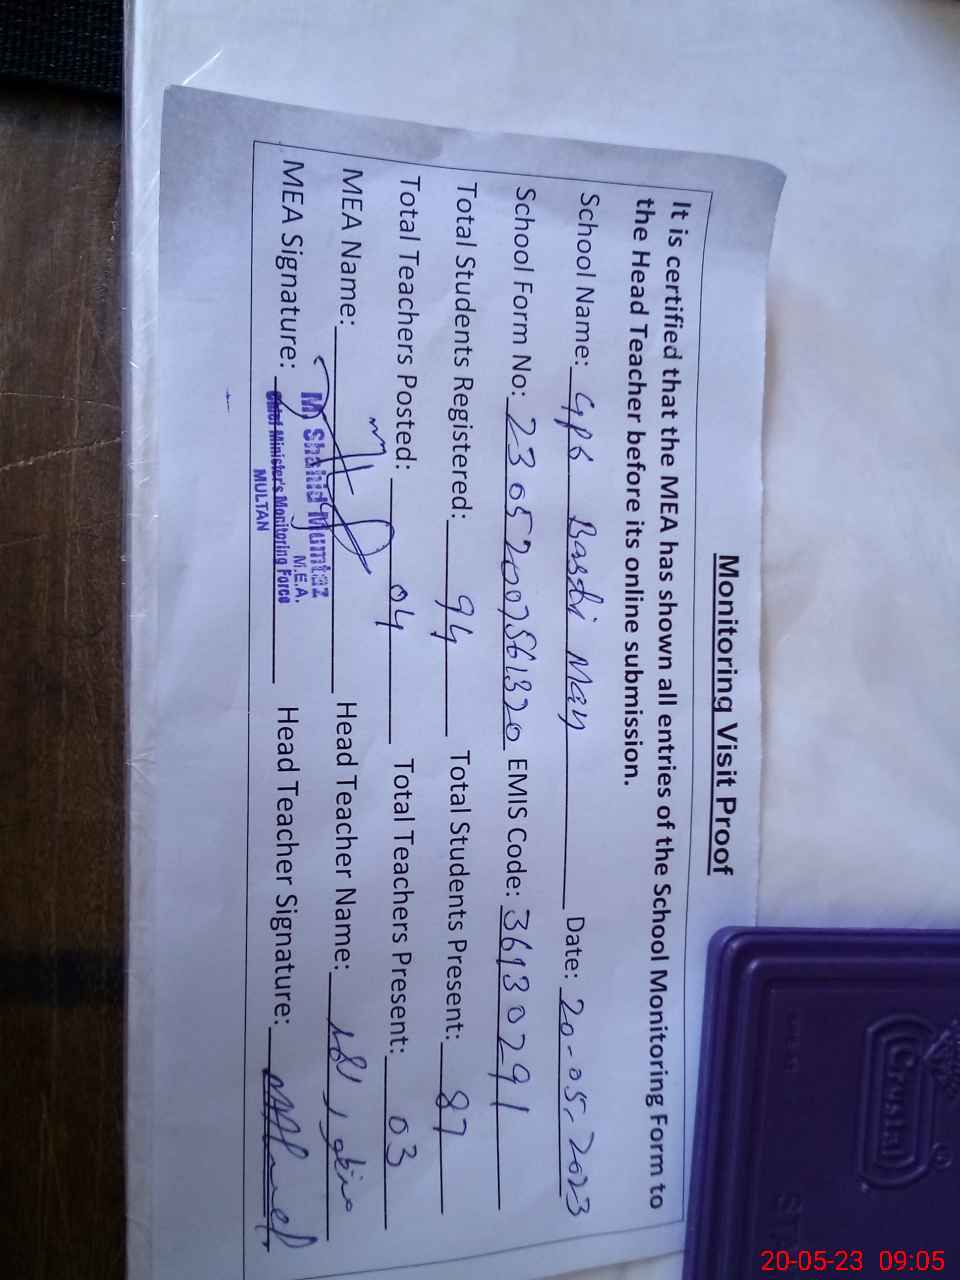 Monitoring Visit Proof
It is certified that the MEA has shown all entries of the School Monitoring Form to
the Head Teacher before its online submission.
School Name: GPS Basti May Date: 20-05-2023
School Form No: 23052007561320 EMIS Code: 36130291
Total Students Registered: 94 Total Students Present: 87
Total Teachers Posted: 04 Total Teachers Present: 03
MEA Name: Head Teacher Name:
M. Shahid Mumtaz
M.E.A.
MEA Signature: Head Teacher Signature:
Chief Minister's Monitoring Force
MULTAN
Crystal
20-05-23 09:05